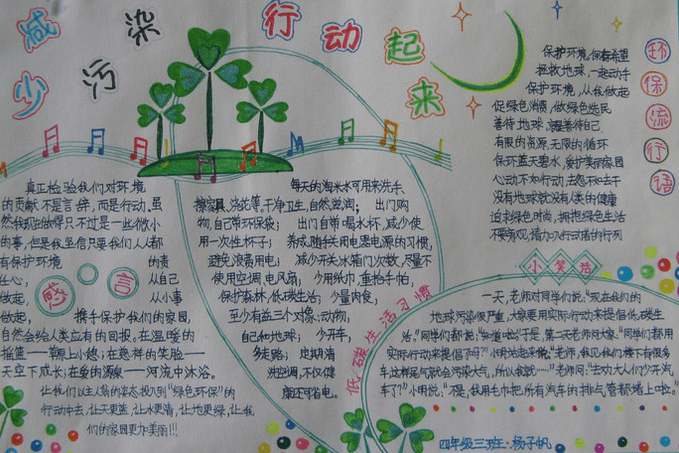 减少污染
行动起来
真正检验我们对环境
的贡献不是言辞,而是行动,虽
然我现在做得只不过是一些微小
的事,但是我坚信只要我们人人都
有保护环境的责
任心,从自己
做起,从小事
做起,携手保护我们的家园,
自然会给人类应有的回报。在温暖的
摇篮——草原上小憩;在慈祥的笑脸——
天空下成长;在爱的源泉——河流中沐浴。
让我们以主人翁的姿态投入到“绿色环保”的
行动中去,让天更蓝,让水更清,让地更绿,让我
们的家园更加美丽!!!
感言
每天的淘米水可用来洗手、
擦家具、浇花等。干净卫生,自然滋润;出门购
物,自己带环保袋;出门自带喝水杯,减少使
用一次性杯子;养成随手关用电器电源的习惯,
避免浪费用电;减少开关冰箱门次数,尽量不
使用空调、电风扇;少用纸巾,重拾手帕,
保护森林,低碳生活;少量肉食,
至少有益三个对象:动物,
自己和地球;少开车,
多走路;定期清
洗空调,不仅健
康还可省电。
低碳生活习惯
环保流行语
保护环境,保存希望
拯救地球,一起动手
保护环境,从我做起
促绿色消费,做绿色选民
善待地球,就是善待自己
有限的资源,无限的循环
保环蓝天碧水,爱护美丽家园
心动不如行动,去怨不如去干
没有地球就没有人类的健康
追求绿色时尚,拥抱绿色生活
不要旁观,请加入行动者的行列
小笑话
一天,老师对同学们说:“现在我们的
地球污染很严重,大家要用实际行动来提倡低碳生
活。”同学们都说:“知道啦!”于是,第二天老师问大家:“同学们都用
实际行动来提倡了吗?”小明站起来说:“老师,我见我们楼下有很多
车,这样尾气就会污染大气,所以我就……”老师问:“生劝大人们少开汽
车了?”小明说:“不是,我用毛巾把所有汽车的排气管都堵上啦。”
四年级三班·杨子帆